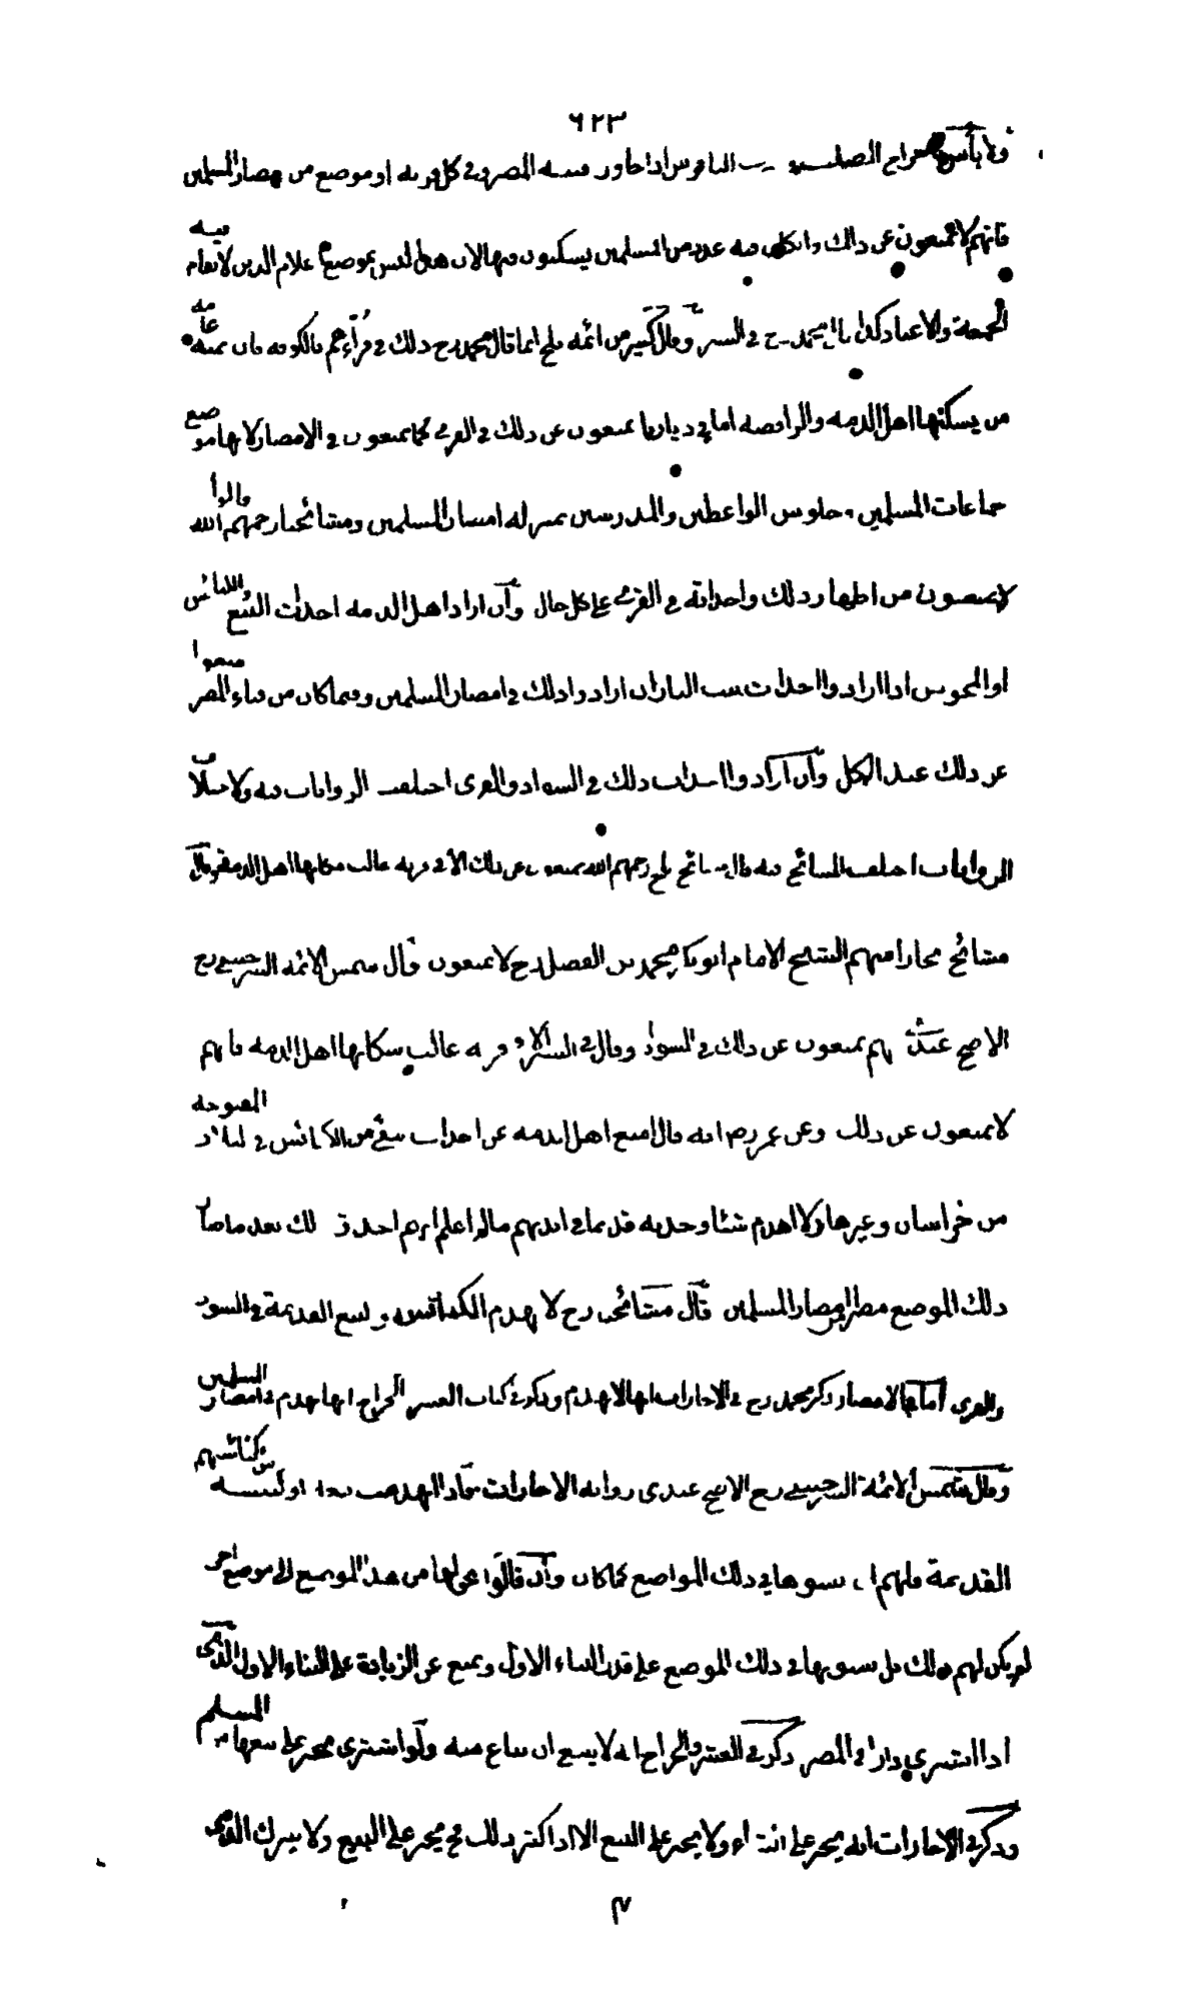 ٦٢٣
ولا بأس باخراج الصليب وضرب الناقوس اذا جاوز فنية المصر وفي كل قرية او موضع من امصار المسلمين
فانهم لا يمنعون عن ذلك وان كان فيه عدد من المسلمين يسكنون فيها لان هذا ليس بموضع اعلام الدين لا تقام فيه
الجمعة والاعياد كذا محمد رح في السير وقال كثير من ائمة بلخ انما قال محمد رح ذلك في قراهم بالكوفة فان عامة
من يسكنها اهل الذمة والرافضة اما في ديارنا يمنعون عن ذلك في القرى كما يمنعون في الامصار لانها موضع
جماعات المسلمين وجلوس الواعظين والمدرسين بمنزلة امصار المسلمين ومشائخنا رحمهم الله قالوا
لا يمنعون من اظهار ذلك واحداثه في القرى على كل حال وان اراد اهل الذمة احداث البيع والكنائس
او المجوس اذا ارادوا احداث بيت النار ان ارادوا ذلك في امصار المسلمين وفيما كان من فناء المصر منعوا
عن ذلك عند الكل وان ارادوا احداث ذلك في السواد والقرى اختلفت الروايات فيه ولاختلاف
الروايات اختلف المشائخ فيه قال مشائخ بلخ رحمهم الله يمنعون عن ذلك الا في قرية غالب سكانها اهل الذمة وقال
مشائخ بخارا منهم الشيخ الامام ابو بكر محمد بن الفضل رح لا يمنعون قال شمس الائمة السرخسي رح
الاصح عندي انهم يمنعون عن ذلك في السواد وقال في السير الا في قرية غالب سكانها اهل الذمة فانهم
لا يمنعون عن ذلك وعن عمر رض انه قال امنع اهل الذمة عن احداث شيء من الكنائس في البلاد المفتوحة
من خراسان وغيرها ولا اهدم شيئا وجدته قديما في ايديهم ما لم اعلم انهم احدثوا ذلك بعد ما صار
ذلك الموضع مصرا من امصار المسلمين قال مشائخنا رح لا يهدم الكنائس والبيع القديمة في السواد
والقرى اما في الامصار ذكر محمد رح في الاجارات انها لا تهدم وذكر في كتاب العشر والخراج انها تهدم في امصار المسلمين
وقال شمس الائمة السرخسي رح الاصح عندي رواية الاجارات فاذا انهدمت بيعة او كنيسة من كنائسهم
القديمة فلهم ان يبنوها في ذلك المواضع كما كان وان قالوا نحولها من هذا الموضع الى موضع اخر
لم يكن لهم ذلك بل يبنوها في ذلك الموضع على قدر البناء الاول ويمنع عن الزيادة على البناء الاول الذمي
اذا اشترى دارا في المصر ذكر في العشر والخراج انه لا ينبغي ان تباع منه ولو اشترى يجبر على بيعها من المسلم
وذكر في الاجارات انه يجبر على الشراء ولا يجبر على البيع الا اذا كثر ذلك فح يجبر على البيع ولا يترك الذمي